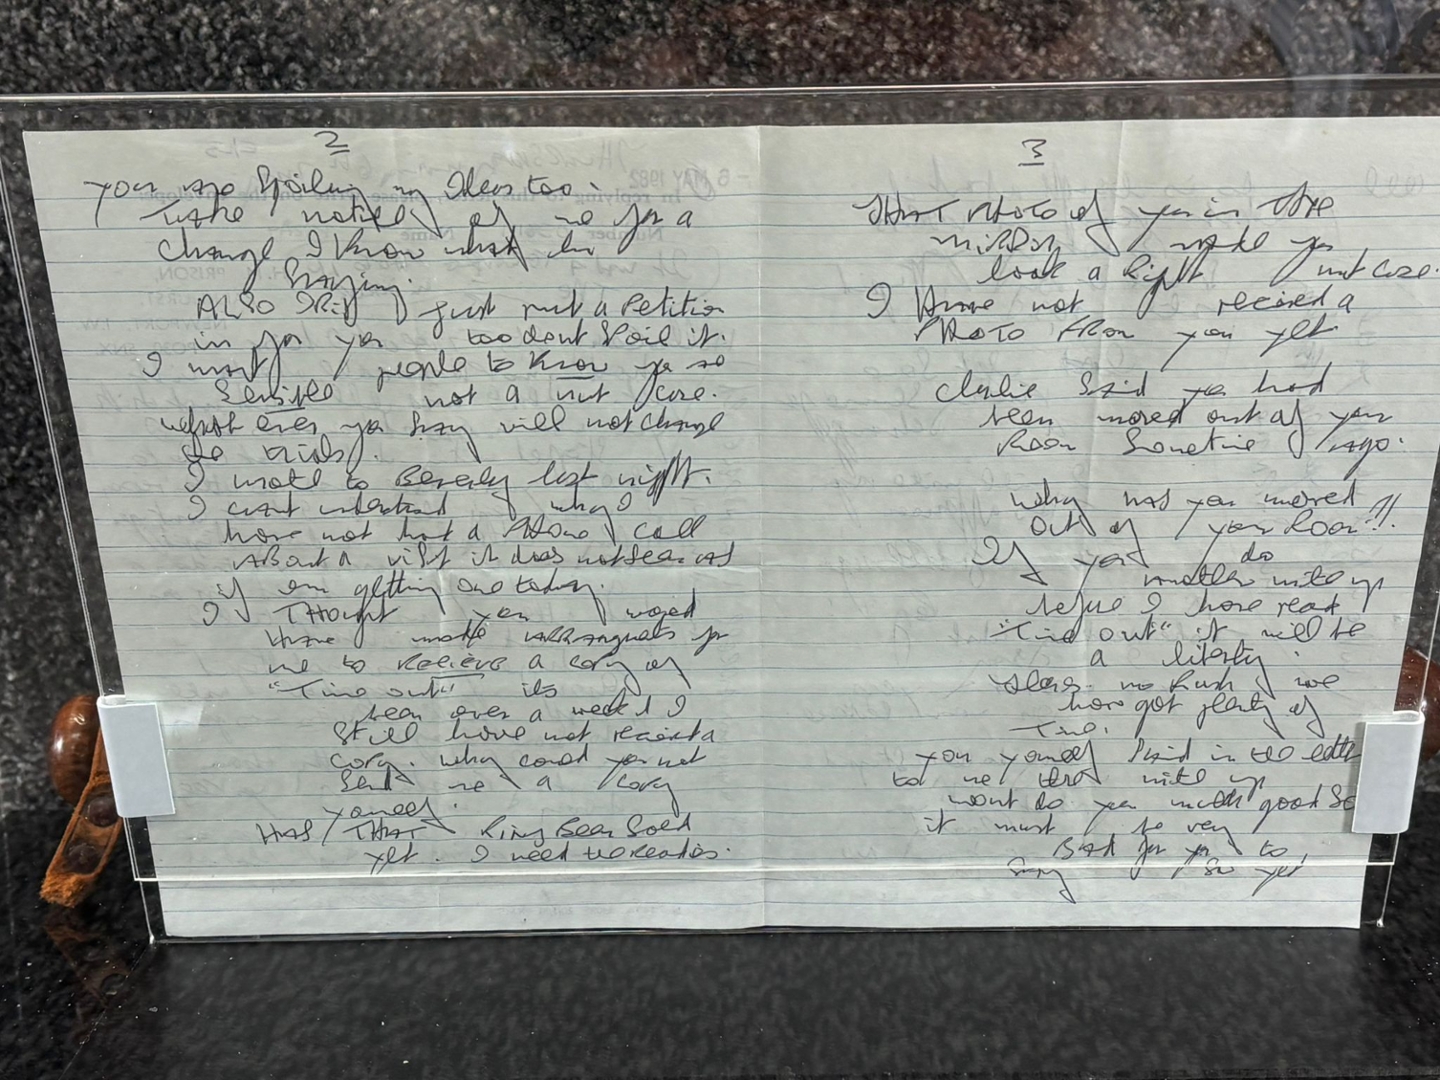 2
you are spoiling my Ideas too.
Take notice of me for a
change I know what Im
Saying.
ALSO just put a Petition
in for you too dont Spoil it.
I want people to know you so
Sensible not a nut case.
what ever you Say will not change
I wrote to Beverly last night.
I cant understand why I
have not had a Phone call
about a visit it does not seem as
if am getting one today.
I THOUGHT you
Have made arrangments for
me to Recieve a copy of
"Time out" its
been over a week & I
Still have not received a
copy. why could you not
Send me a copy
yourself.
HAS THAT Ring Been Sold
yet. I need the readies.
3
THAT PHOTO of you in the
mirror make you
look a Right nut case.
I Have not received a
PHOTO FROM you yet
Charlie Said you had
been moved out of your
Room Sometime ago.
why has you moved
out of your Room!!!
If you do
another write up
before I have read
"Time out" it will be
a liberty.
no Rush we
have got plenty of
Time.
you yourself Said in the letter
to me that write up
wont do you much good So
it must be very
Bad for you to
Say So yet
- 6 MAY 1982
In replying to this
Number Name
PRISON,
NEWPORT,